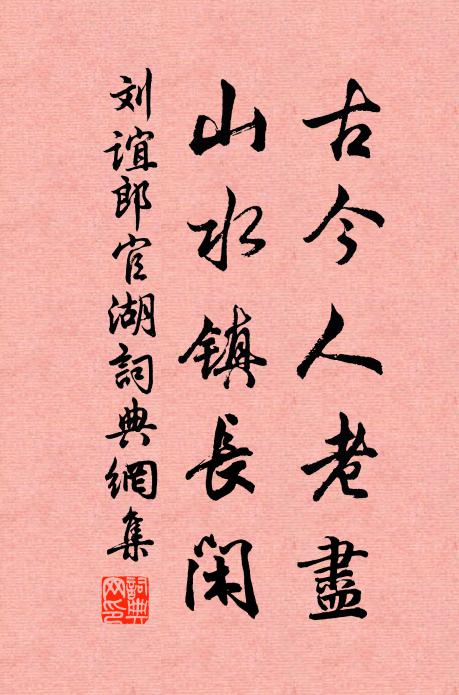 古今人老盡
山水镇長闲
刘谊郎官湖詞典網集
詞典網印